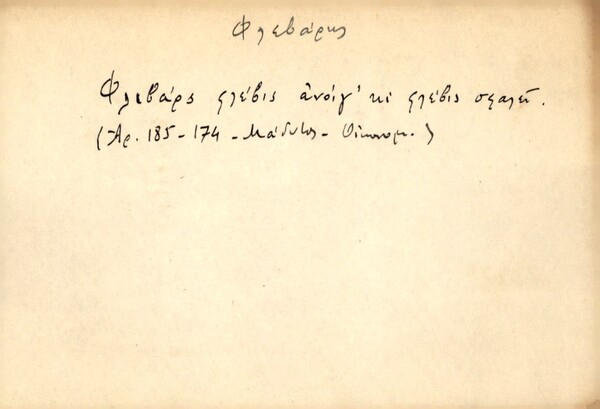 Φλεβάρης
Φλιβάρς φλέβις ἀνοίγ' κὶ φλέβις σφαλεῖ.
(Ἀρ. 185 - 174 - Μάδυτος - Οἰκονομ.)